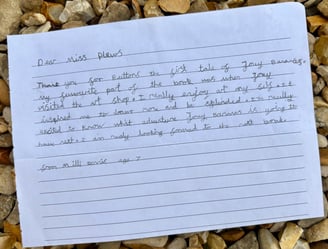 Dear Miss Plews
Thank you for Buttons the first tale of Joey Bananas.
My favourite part of the book was when Joey
visited the art shop. I really enjoy art my self. It
inspired me to draw more and be
excited to know what adventure Joey Bananas is going to
have next. I am really looking forward to the next book.
from Milli age 7